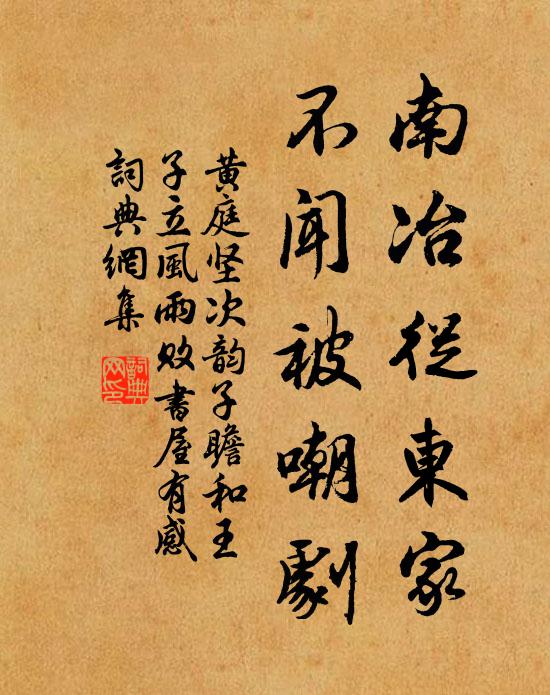 南冶從東家
不闻被嘲劇
黄庭坚次韵子瞻和王
子立風雨败書屋有感
詞典網集
詞典网印